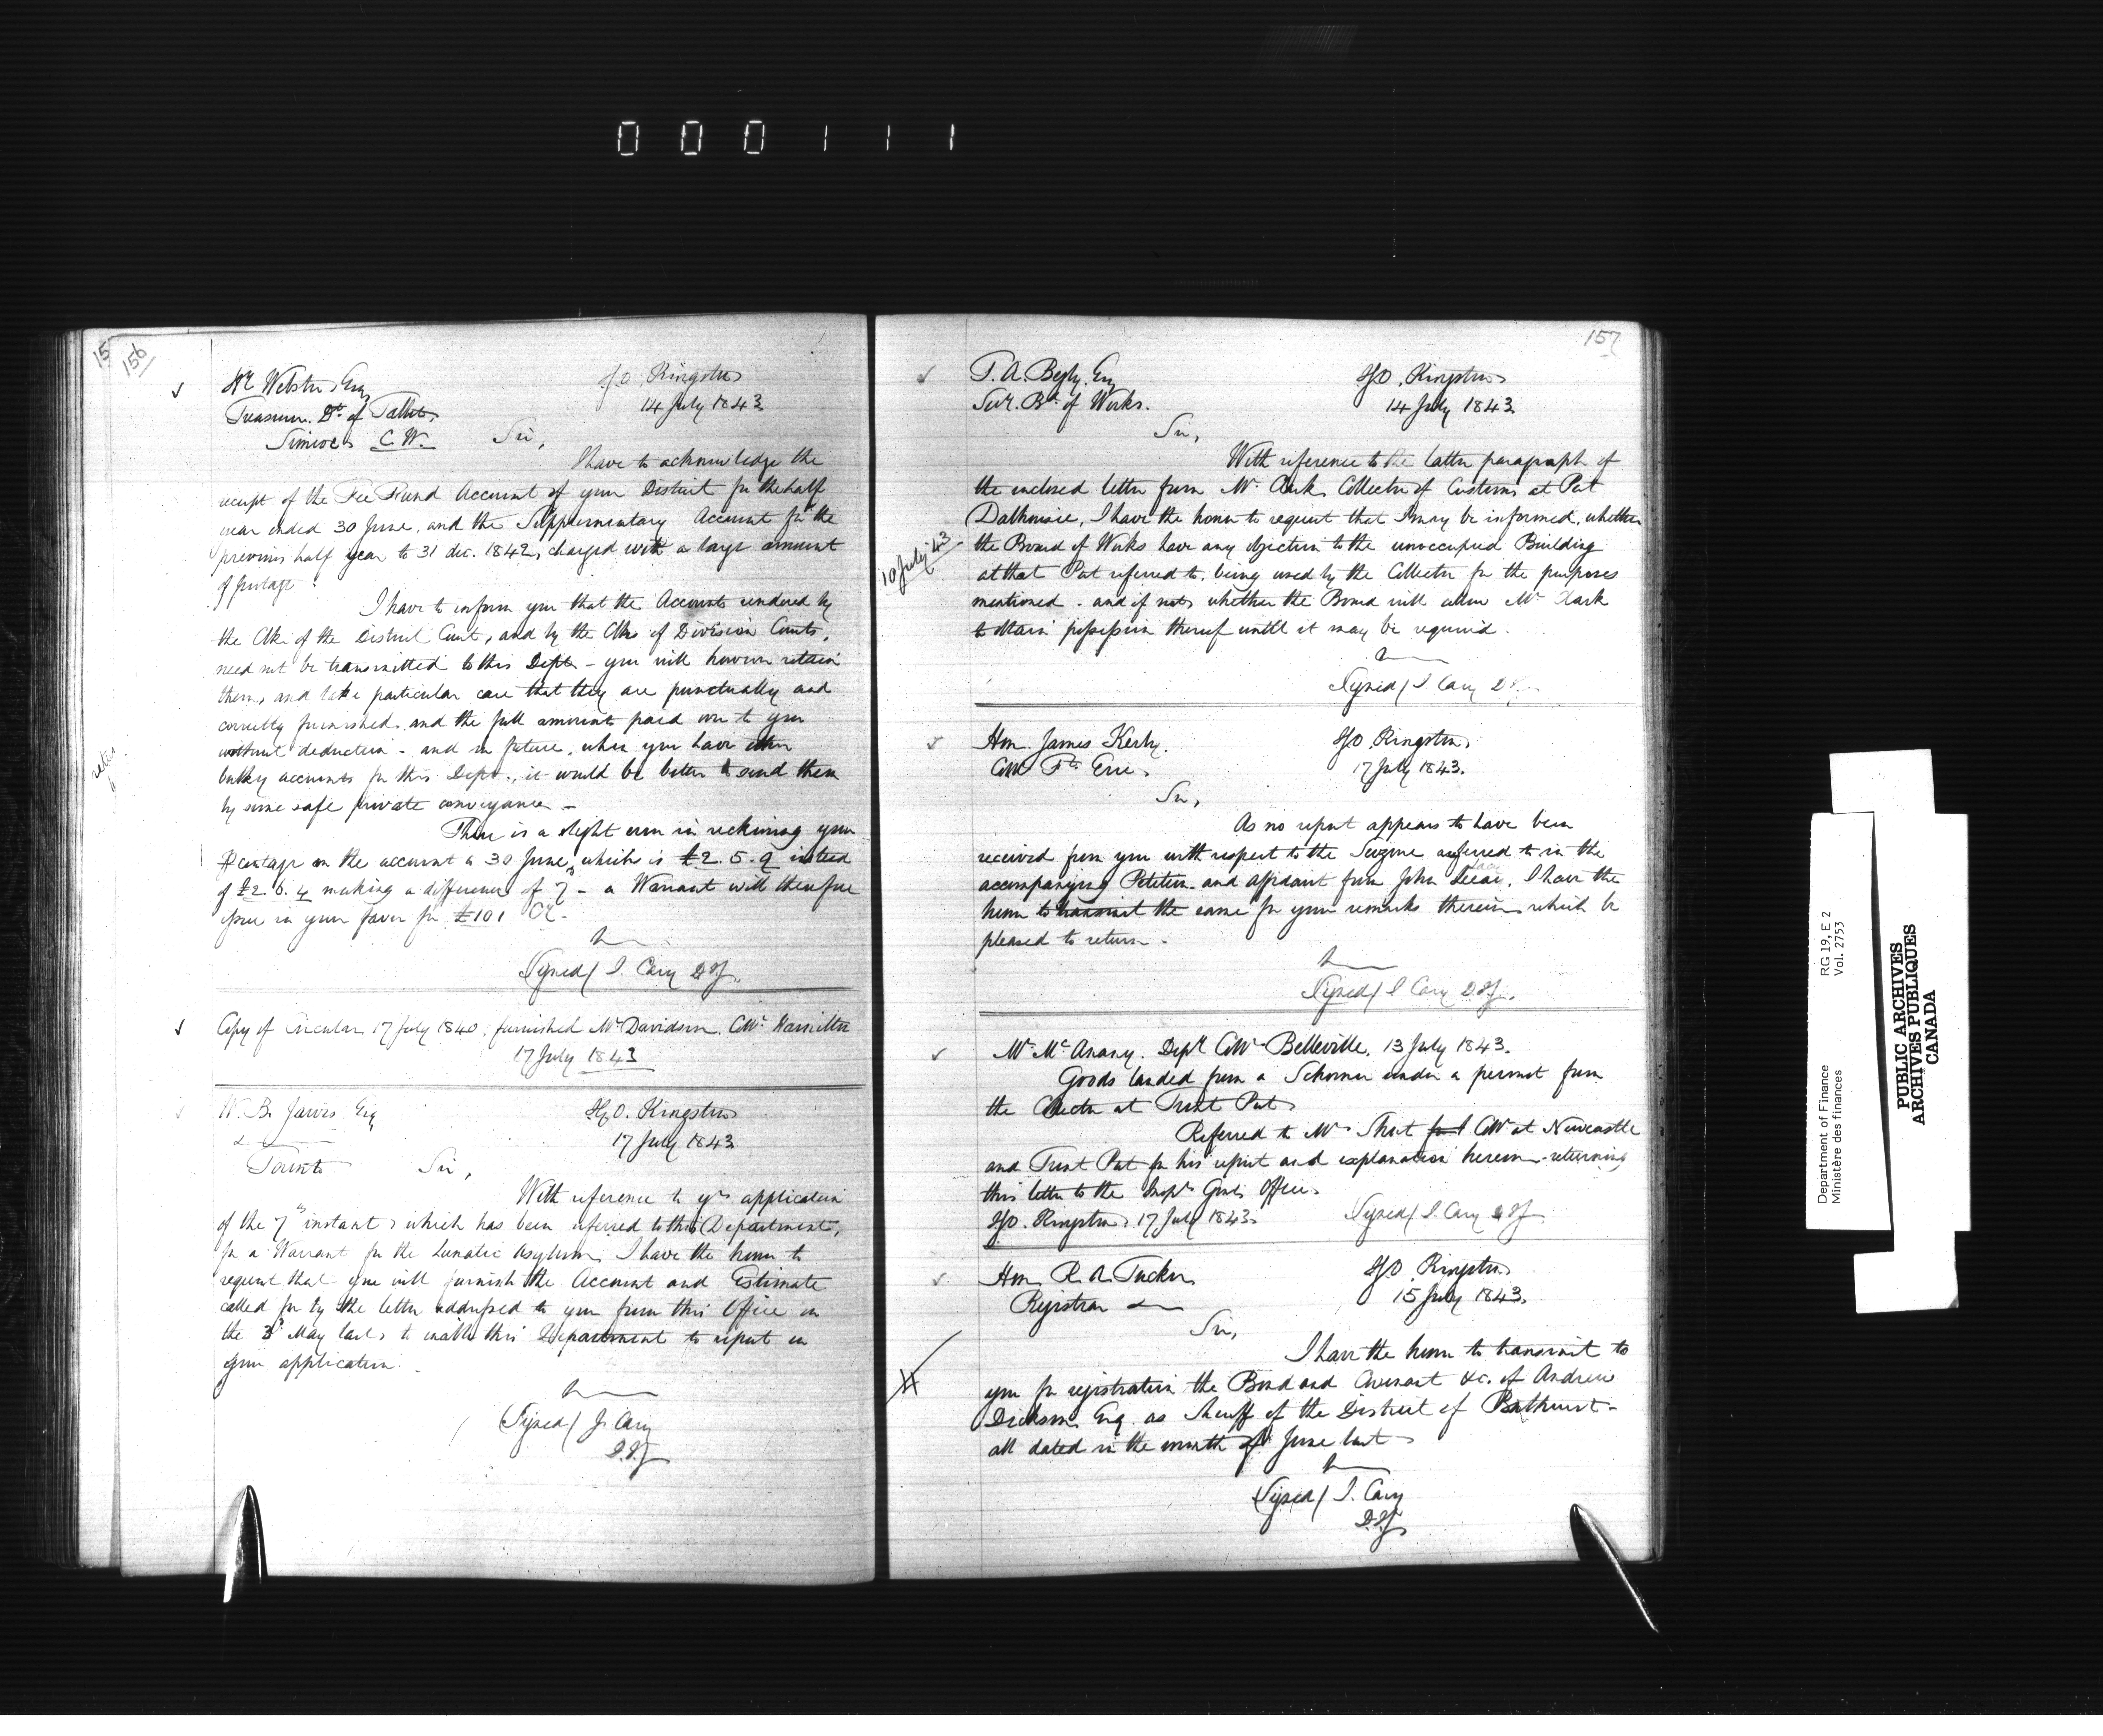 000111
15
156
Wr. Webster Esq
Treasurer Dt. of Talbot,
Simcoe C.W.
IGO, Kingston
14 July 1843
Sir,
I have to acknowledge the
receipt of the Fee Fund Account of your District for the half
year ended 30 June, and the Supplementary Account for the
previous half year to 31 dec. 1842, charged with a large amount
of postage.
I have to inform you that the Accounts rendered by
the Clk of the District Court, and by the Clks of Division Courts,
need not be transmitted to this Dept - you will however retain
them, and take particular care that they are punctually and
correctly furnished, and the full amounts paid over to you
without deduction - and in future, when you have other
bulky accounts for this Dept., it would be better to send them
by some safe private conveyance -
There is a slight error in reckoning your
Pcentage on the account to 30 June, which is £2. 5. 9 instead
of £2. 6. 4 making a difference of 7d - a Warrant will therefore
issue in your favor for £101 Cy.
Signed / J. Cary D.I.G.
Copy of Circular 17 July 1840, furnished Mr Davidson, Collr Hamilton
17 July 1843
W. B. Jarvis Esq
&
Toronto
IGO. Kingston
17 July 1843
Sir,
With reference to yr application
of the 7th instant, which has been referred to this Department,
for a Warrant for the Lunatic Asylum, I have the honor to
request that you will furnish the Account and Estimate
called for by the letter addressed to you from this Office on
the 3d May last, to enable this Department to report on
your application.
Signed / J. Cary
D.I.G.
157
T. A. Begly, Esq
Secr. Bd. of Works.
IGO, Kingston
14 July 1843
Sir,
With reference to the latter paragraph of
the enclosed letter from Mr. Clark, Collector of Customs at Port
Dalhousie, I have the honor to request that I may be informed, whether
10 July '43
the Board of Works have any objection to the unoccupied Building
at that Port referred to, being used by the Collector for the purposes
mentioned - and if not, whether the Board will allow Mr Clark
to retain possession thereof until it may be required.
Signed / J. Cary D.I.G.
Hon. James Kerby.
Collr Ft Erie.
IGO, Kingston
17 July 1843.
Sir,
As no report appears to have been
received from you with respect to the Seizure referred to in the
accompanying Petition and affidavit from John, I have the
honor to transmit the same for your remarks therein, which be
pleased to return.
Signed / J Cary D.I.G.
Mr. McAnany. Depy Collr Belleville, 13 July 1843.
Goods landed from a Schooner under a permit from
the Collector at Trent Port
Referred to Mr Short Collr at Newcastle
and Trent Port for his report and explanation hereon - returning
this letter to the Inspr Genls Office.
IGO. Kingston, 17 July 1843.
Signed / J. Cary D.I.G.
Hon R. A. Tucker
Registrar &
IGO, Kingston
15 July 1843.
Sir,
I have the honor to transmit to
you for registration the Bond and Covenant &c. of Andrew
Dickson Esq. as Sheriff of the District of Bathurst -
all dated in the month of June last
Signed / J. Cary
D.I.G.
Department of Finance
Ministère des finances
RG 19, E 2
Vol. 2753
PUBLIC ARCHIVES
ARCHIVES PUBLIQUES
CANADA